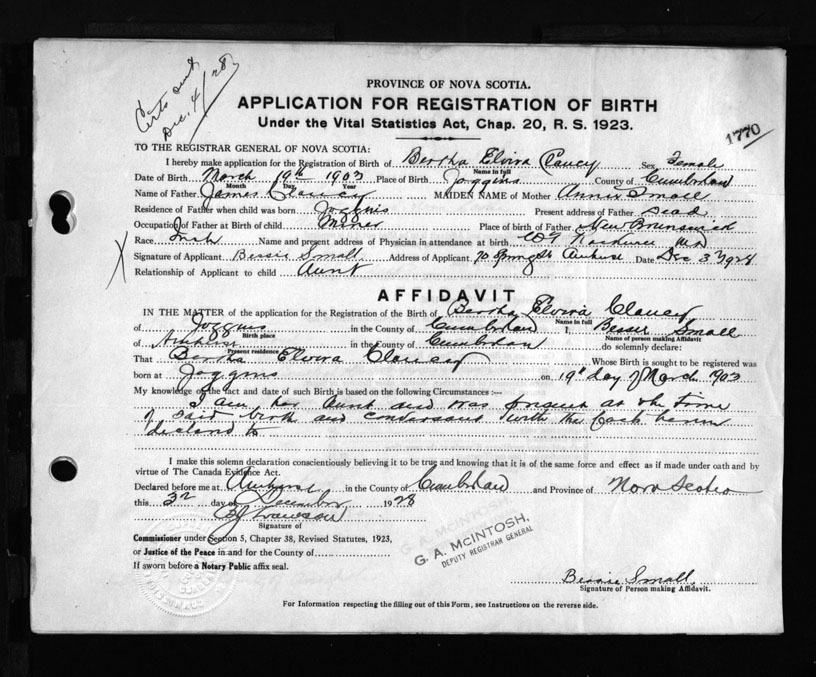 Certs sent
Dec. 4/28
PROVINCE OF NOVA SCOTIA.
APPLICATION FOR REGISTRATION OF BIRTH
Under the Vital Statistics Act, Chap. 20, R. S. 1923.
1770
TO THE REGISTRAR GENERAL OF NOVA SCOTIA:
I hereby make application for the Registration of Birth of Bertha Elvira Clancy Sex Female
Name in full
Date of Birth March 19th 1903 Place of Birth Joggins County of Cumberland
Month Day Year
Name of Father James Clancy MAIDEN NAME of Mother Annie Small
Residence of Father when child was born Joggins Present address of Father Dead
Occupation of Father at Birth of child Miner Place of birth of Father New Brunswick
Race Irish Name and present address of Physician in attendance at birth MD
X
Signature of Applicant Bessie Small Address of Applicant 70 Spring St Amherst Date Dec 3 1928
Relationship of Applicant to child Aunt
AFFIDAVIT
IN THE MATTER of the application for the Registration of the Birth of Bertha Elvira Clancy
Name in full
of Joggins in the County of Cumberland I, Bessie Small
Birth place Name of person making Affidavit
of Amherst in the County of Cumberland do solemnly declare:
Present residence
That Bertha Elvira Clancy Whose Birth is sought to be registered was
born at Joggins on 19th day of March 1903
My knowledge of the fact and date of such Birth is based on the following Circumstances :—
I am her Aunt and was present at the time
of said birth and conversant with the facts herein
declared to
I make this solemn declaration conscientiously believing it to be true and knowing that it is of the same force and effect as if made under oath and by
virtue of The Canada Evidence Act.
Declared before me at Amherst in the County of Cumberland and Province of Nova Scotia
this 3rd day of December 1928
Signature of
Commissioner under Section 5, Chapter 38, Revised Statutes, 1923,
or Justice of the Peace in and for the County of
If sworn before a Notary Public affix seal.
G. A. McINTOSH,
DEPUTY REGISTRAR GENERAL
Bessie Small
Signature of Person making Affidavit.
For Information respecting the filling out of this Form, see Instructions on the reverse side.